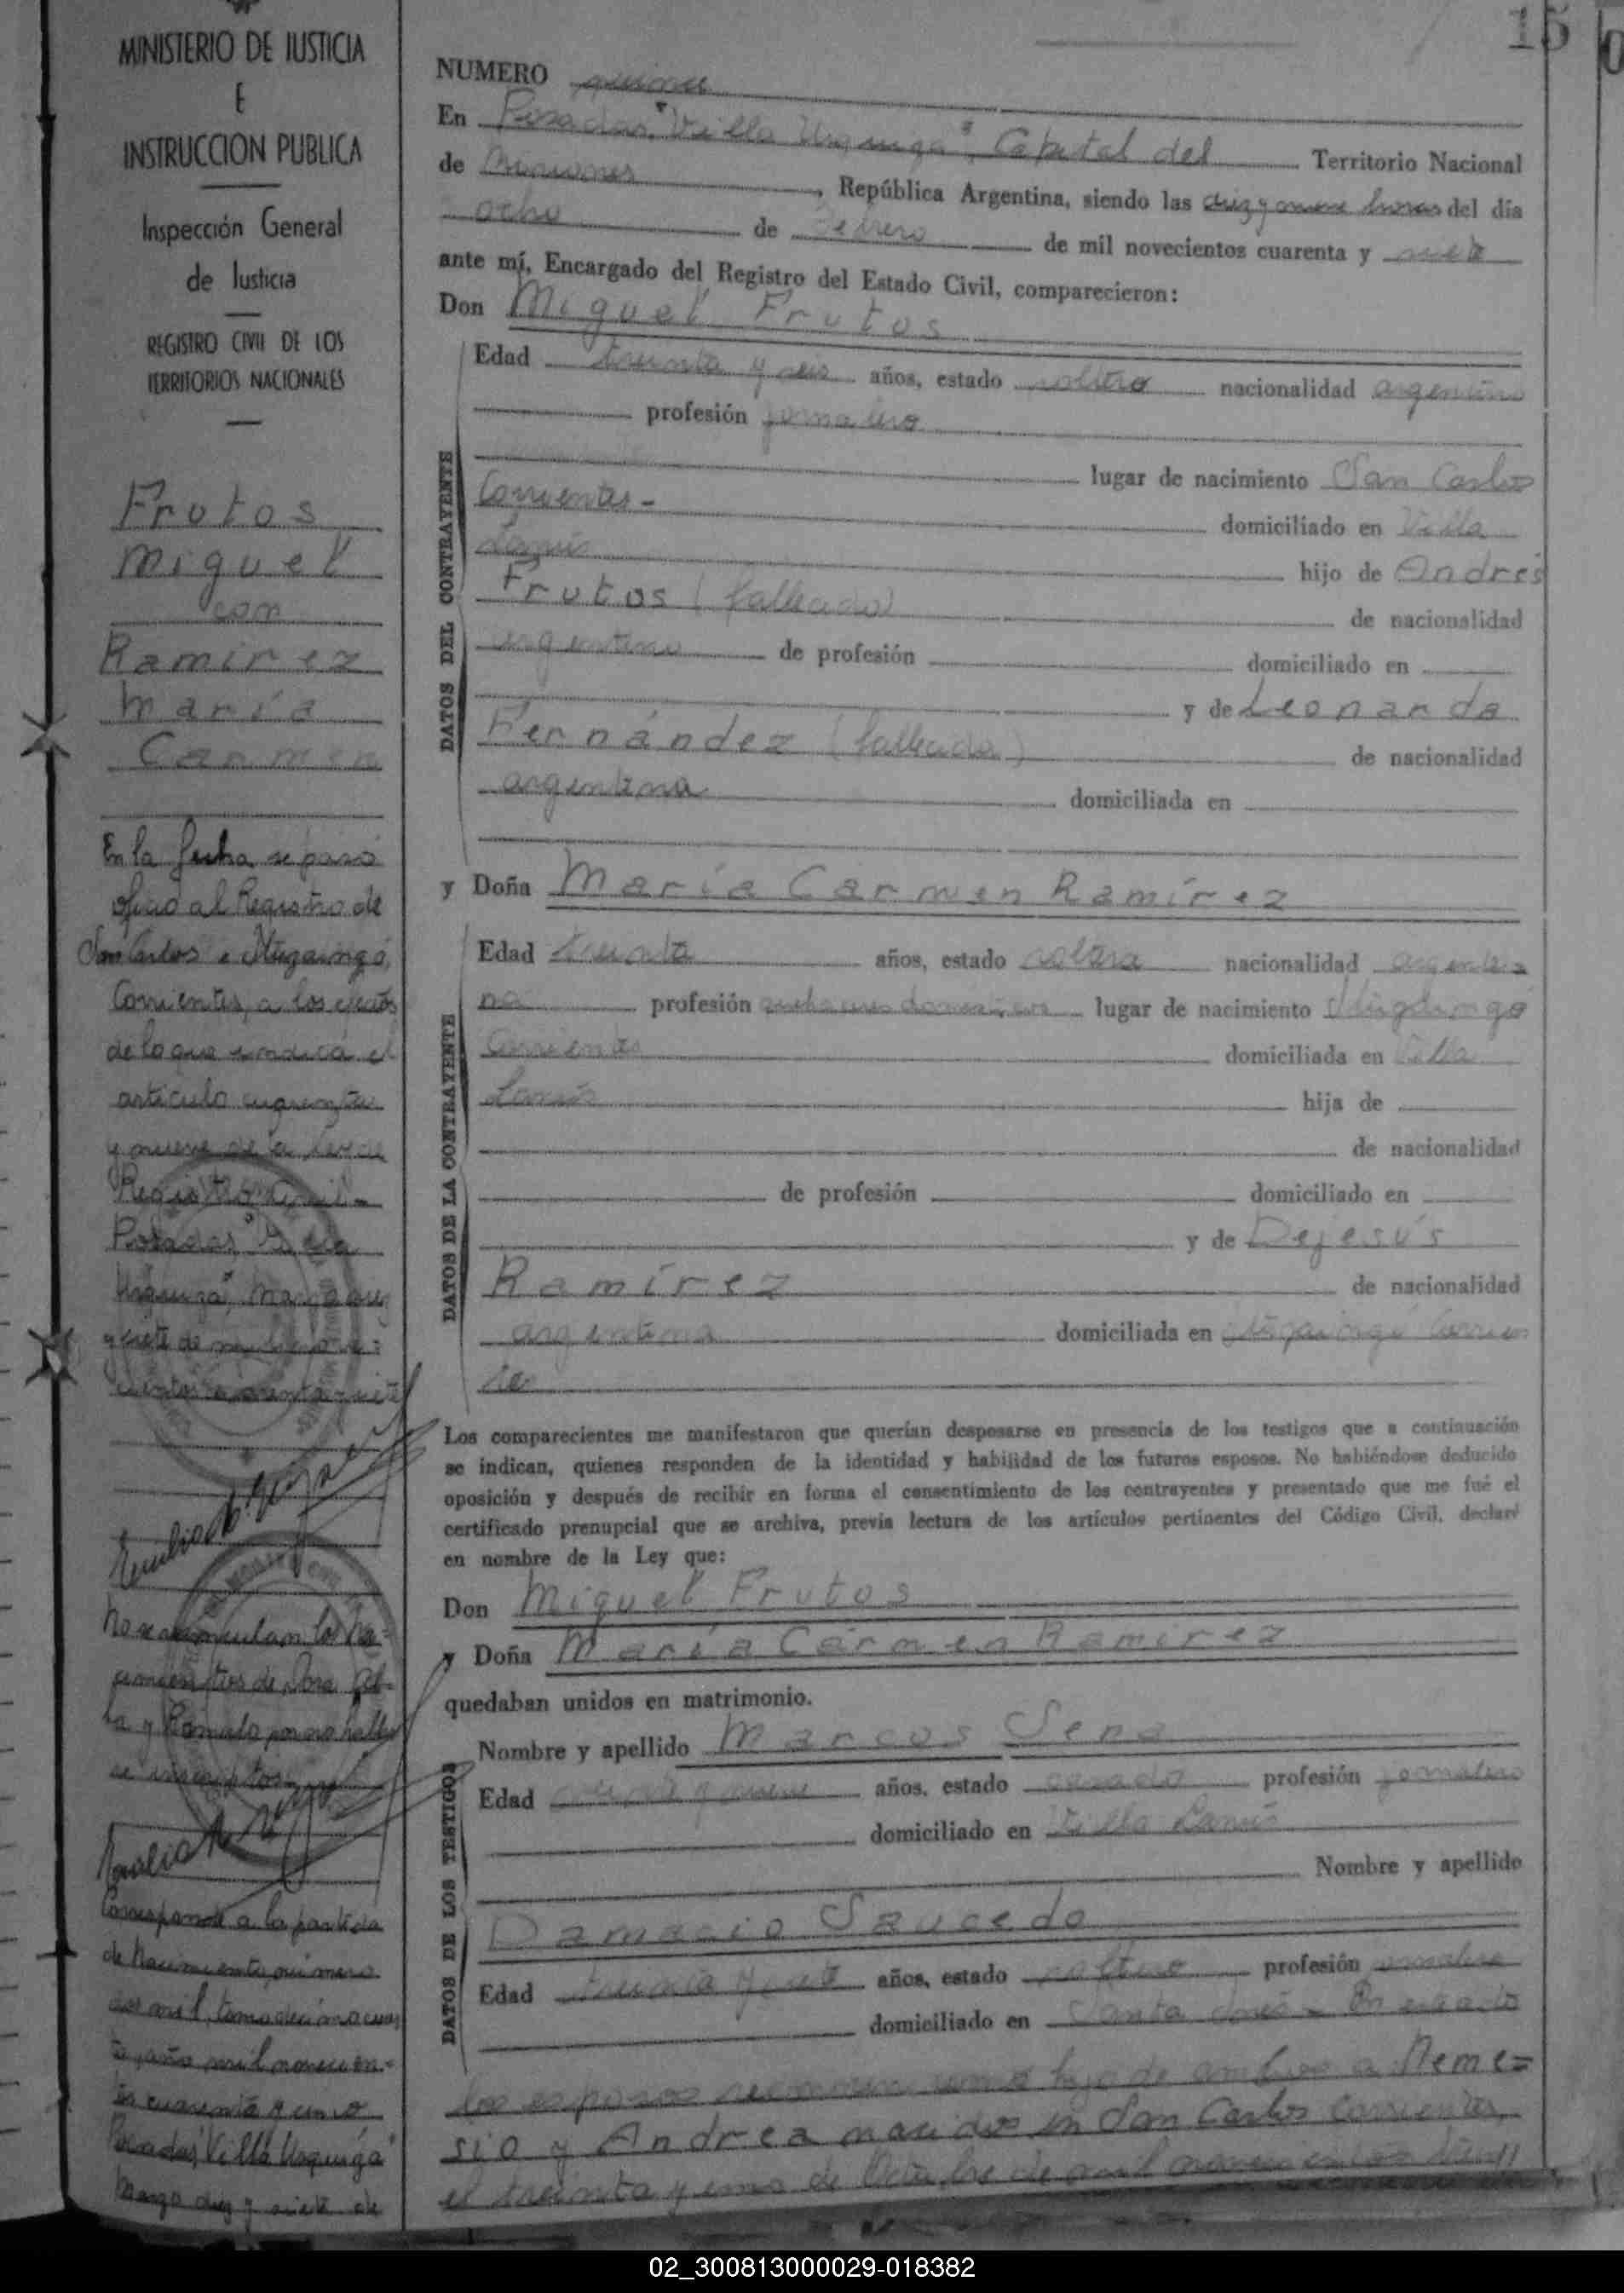 15
MINISTERIO DE JUSTICIA
E
INSTRUCCION PUBLICA
Inspección General
de Justicia
REGISTRO CIVIL DE LOS
TERRITORIOS NACIONALES
Frutos
Miguel
con
Ramirez
María
Carmen
En la fecha se pasó
oficio al Registro de
San Carlos e
Corrientes, a los efectos
de lo que indica el
artículo cuarenta
y nueve de la Ley de
Registro Civil -
Posadas, "Villa
Urquiza", Marzo diez
y siete de mil nove=
cientos cuarenta y siete
No se vinculan los na=
cimientos de
y Romulo por no hallar
se inscriptos
Corresponde a la partida
de Nacimiento número
dos mil, tomo décimo cuar
to, año mil novecien=
tos cuarenta y uno
Posadas, "Villa Urquiza"
Marzo diez y siete de
NUMERO quince
En Posadas, "Villa Urquiza", Capital del Territorio Nacional
de Misiones, República Argentina, siendo las diez y nueve horas del día
ocho de Febrero de mil novecientos cuarenta y siete
ante mí, Encargado del Registro del Estado Civil, comparecieron:
Don Miguel Frutos
DATOS DEL CONTRAYENTE
Edad treinta y seis años, estado soltero nacionalidad argentino
profesión jornalero
lugar de nacimiento San Carlos
Corrientes - domiciliado en Villa
Lanús hijo de Andrés
Frutos (fallecido) de nacionalidad
argentino de profesión domiciliado en
y de Leonarda
Fernández (fallecida) de nacionalidad
argentina domiciliada en
y Doña María Carmen Ramírez
DATOS DE LA CONTRAYENTE
Edad treinta años, estado soltera nacionalidad argenti=
na profesión quehaceres domésticos lugar de nacimiento
Corrientes domiciliada en Villa
Lanús hija de
de nacionalidad
de profesión domiciliado en
y de Dejesús
Ramírez de nacionalidad
argentina domiciliada en Corrien
tes
Los comparecientes me manifestaron que querían desposarse en presencia de los testigos que a continuación
se indican, quienes responden de la identidad y habilidad de los futuros esposos. No habiéndose deducido
oposición y después de recibir en forma el consentimiento de los contrayentes y presentado que me fué el
certificado prenupcial que se archiva, previa lectura de los artículos pertinentes del Código Civil, declaré
en nombre de la Ley que:
Don Miguel Frutos
y Doña María Cármen Ramirez
quedaban unidos en matrimonio.
DATOS DE LOS TESTIGOS
Nombre y apellido Marcos Sena
Edad y nueve años, estado casado profesión jornalero
domiciliado en Villa Lanús
Nombre y apellido
Damacio Saucedo
Edad treinta y siete años, estado soltero profesión jornalero
domiciliado en Santa Inés - En este acto
los esposos reconocen como hijo de ambos a Neme=
sio y Andrea nacidos en San Carlos Corrientes,
el treinta y uno de Octubre de mil novecientos
02_300813000029-018382